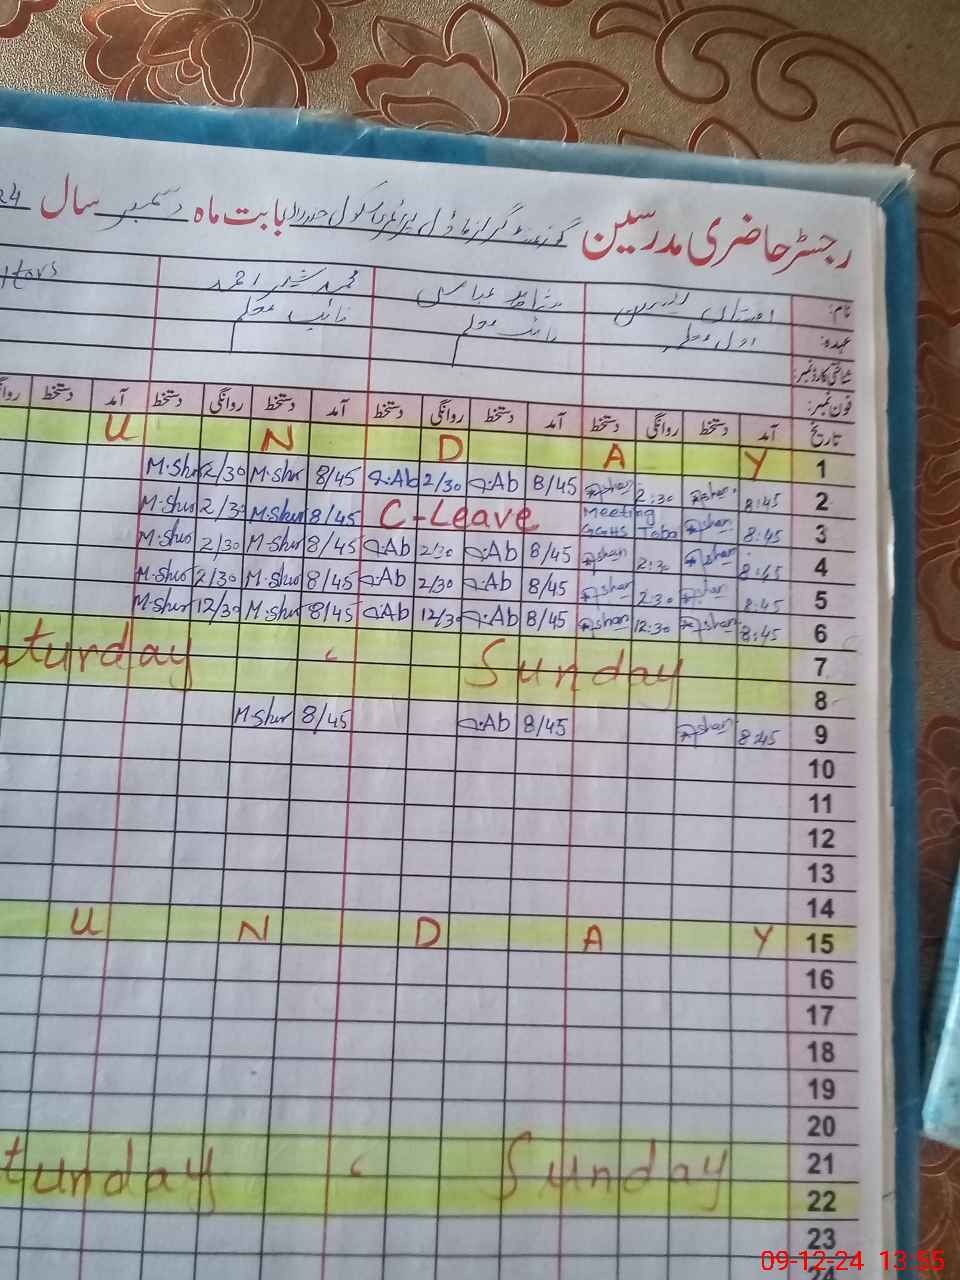 رجسٹر حاضری مدرسین گورنمنٹ گرلز ماڈل پرائمری سکول بابت ماہ دسمبر سال 24
نام: عباسی محمد شیر احمد itors
عہدہ: اول معلم نائب معلم نائب معلم
شناختی کارڈ نمبر:
فون نمبر:
تاریخ آمد دستخط روانگی دستخط آمد دستخط روانگی دستخط آمد دستخط روانگی دستخط آمد دستخط
U N D A Y 1
M.Shr 2/30 M.Shr 8/45 Ab 2/30 Ab 8/45 shan 2:30 shan 8:45 2
M.Shr 2/3 M.Shr 8/45 C-Leave Meeting GGHS shan 8:45 3
M.Shr 2/30 M.Shr 8/45 Ab 2/30 Ab 8/45 shan 2:30 shan 8:45 4
M.Shr 2/30 M.Shr 8/45 Ab 2/30 Ab 8/45 shan 2:30 shan 8:45 5
M.Shr 12/30 M.Shr 8/45 Ab 12/30 Ab 8/45 shan 12:30 shan 8:45 6
aturday Sunday 7
8
M.Shr 8/45 Ab 8/45 shan 8:45 9
10
11
12
13
14
U N D A Y 15
16
17
18
19
20
turday Sunday 21
22
23
24
09-12-24 13:55